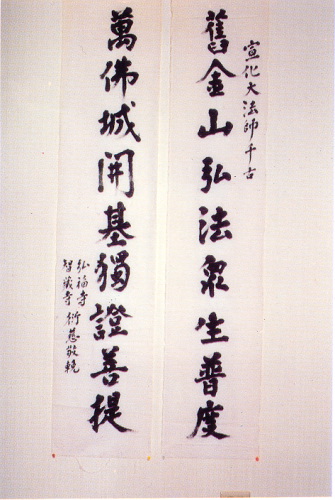 宣化大法師千古
舊金山弘法眾生普度
萬佛城開基獨證菩提
弘福寺
智嚴寺 衍慈敬輓